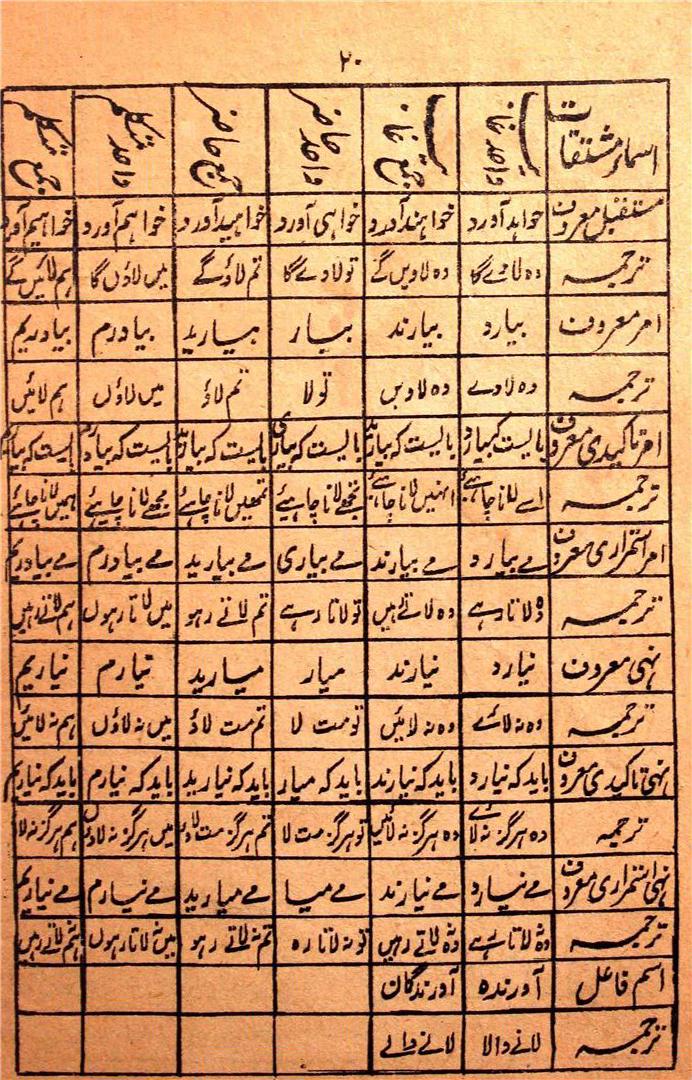 ۲۰
اسمائے مشتقات واحد غائب جمع غائب واحد حاضر جمع حاضر واحد متکلم جمع متکلم
مستقبل معروف خواہد آورد خواہند آورد خواہی آورد خواہید آورد خواہم آورد خواہیم آورد
ترجمہ وہ لاوے گا وہ لاویں گے تو لاوے گا تم لاؤ گے میں لاؤں گا ہم لائیں گے
امر معروف بیارد بیارند بیار بیارید بیاورم بیاوریم
ترجمہ وہ لاوے وہ لاویں تو لا تم لاؤ میں لاؤں ہم لائیں
امر تاکیدی معروف بالیست کہ بیارد بالیست کہ بیارند بالیست کہ بیاری بالیست کہ بیارید بالیست کہ بیاورم
ترجمہ اسے لانا چاہئے انہیں لانا چاہئے تجھے لانا چاہیئے تمہیں لانا چاہیئے مجھے لانا چاہیئے ہمیں لانا چاہئے
امر استمراری معروف مے بیارد مے بیارند مے بیاری مے بیارید مے بیاورم مے بیاوریم
ترجمہ وہ لاتا رہے وہ لاتے ہیں تو لاتا رہے تم لاتے رہو میں لاتا رہوں ہم لاتے رہیں
نہی معروف نیارد نیارند میار میارید نیارم نیاریم
ترجمہ وہ نہ لائے وہ نہ لائیں تو مت لا تم مت لاؤ میں نہ لاؤں ہم نہ لائیں
نہی تاکیدی معروف باید کہ نیارد باید کہ نیارند باید کہ میار باید کہ نیارید باید کہ نیارم باید کہ نیاریم
ترجمہ وہ ہرگز نہ لائے وہ ہرگز نہ لائیں تو ہرگز مت لا تم ہرگز مت لاؤ میں ہرگز نہ لاؤں ہم ہرگز نہ لا
نہی استمراری معروف مے نیارد مے نیارند مے میا مے میارید مے نیارم مے نیاریم
ترجمہ وہ نہ لاتا رہے وہ نہ لاتے رہیں تو نہ لاتا رہ تم نہ لاتے رہو میں نہ لاتا رہوں ہم نہ لاتے رہیں
اسم فاعل آورندہ آورندگان
ترجمہ لانے والا لانے والے